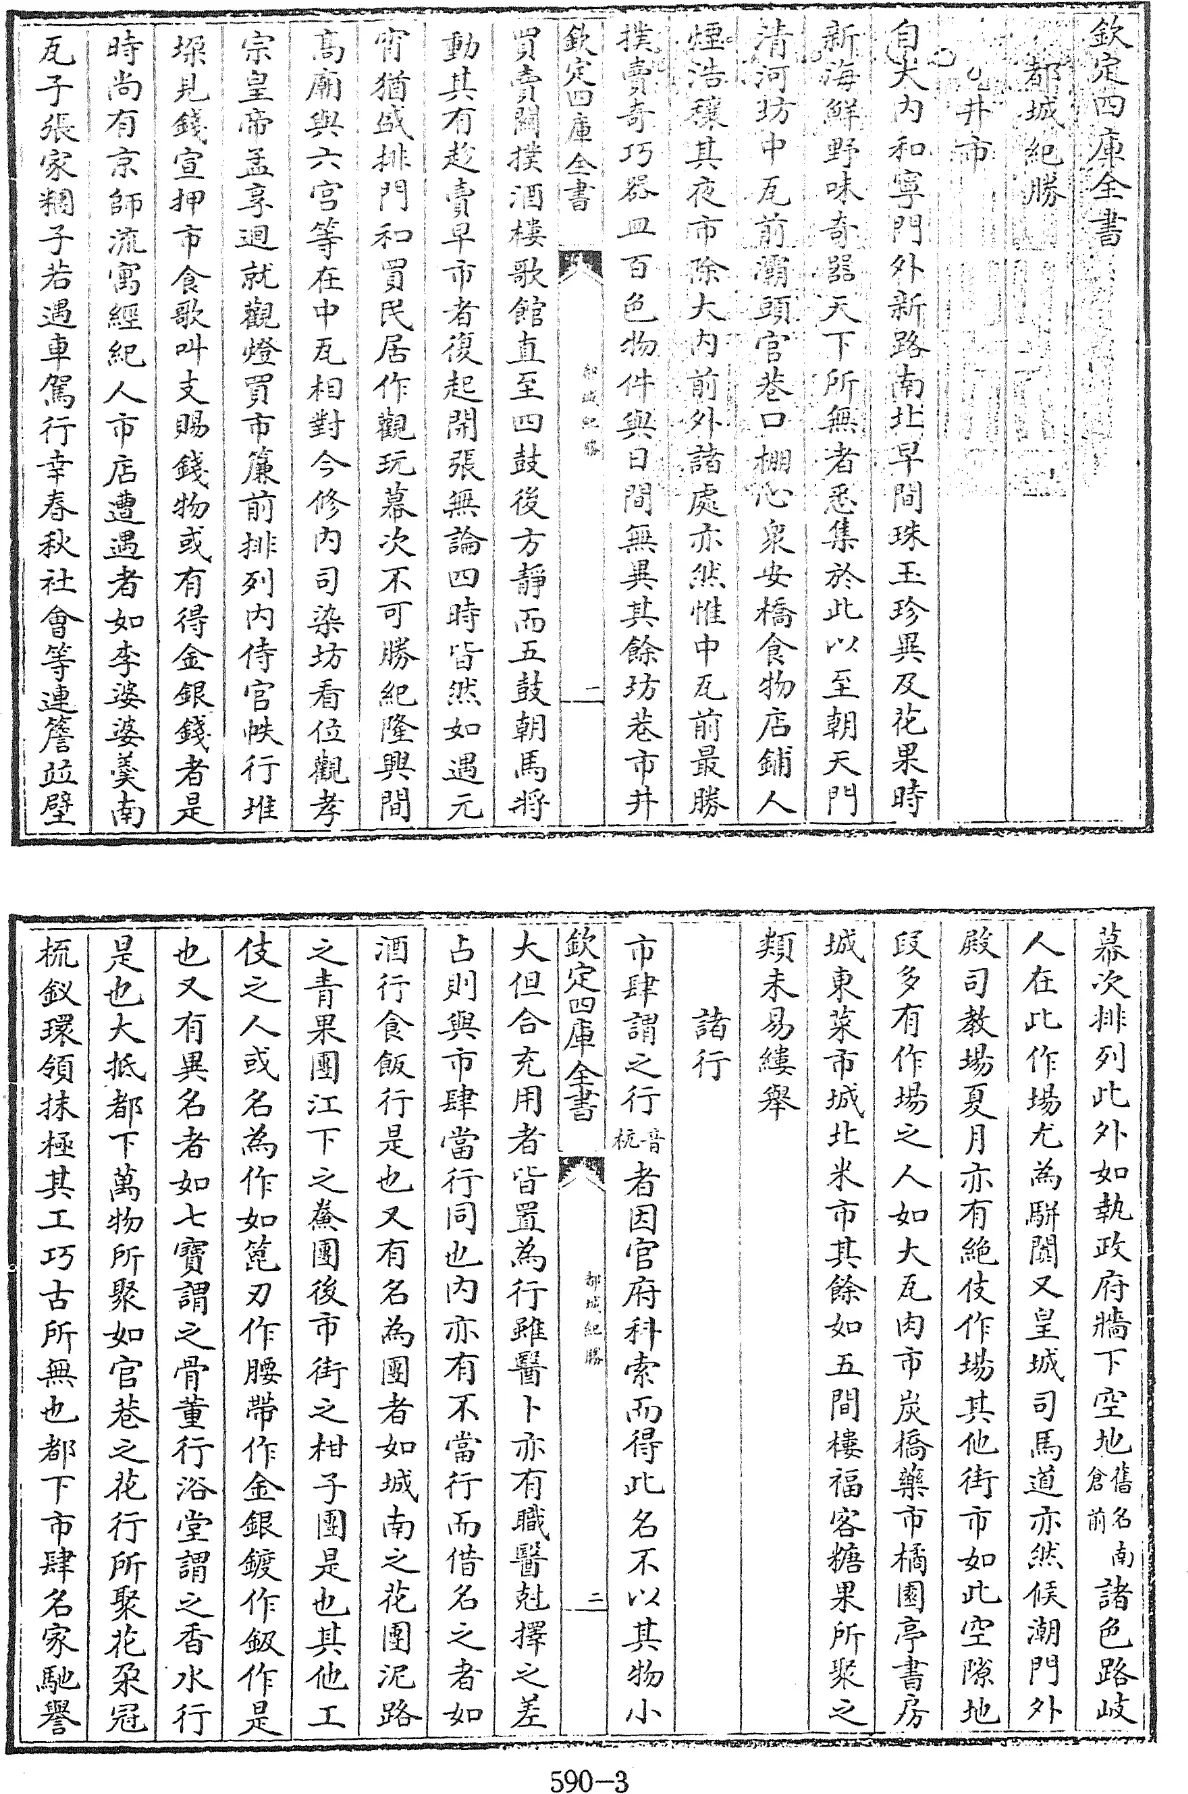 欽定四庫全書
都城紀勝
井市
自大内和寧門外新路南北早間珠玉珍異及花果時
新海鮮野味奇器天下所無者悉集於此以至朝天門
清河坊中瓦前灞頭官巷口棚心衆安橋食物店鋪人
煙浩穰其夜市除大内前外諸處亦然惟中瓦前最勝
撲賣奇巧器皿百色物件與日間無異其餘坊巷市井
欽定四庫全書 都城紀勝 二
買賣關撲酒樓歌館直至四鼓後方靜而五鼓朝馬將
動其有趁賣早市者復起開張無論四時皆然如遇元
宵猶盛排門和買民居作觀玩幕次不可勝紀隆興間
高廟與六宮等在中瓦相對今修内司染坊看位觀孝
宗皇帝孟享迴就觀燈買市簾前排列内侍官帙行堆
垜見錢宣押市食歌叫支賜錢物或有得金銀錢者是
時尚有京師流寓經紀人市店遭遇者如李婆婆羮南
瓦子張家糰子若遇車駕行幸春秋社會等連簷竝壁
幕次排列此外如執政府牆下空地舊名南倉前諸色路岐
人在此作場尤為駢闐又皇城司馬道亦然候潮門外
殿司教場夏月亦有絶伎作場其他街市如此空隙地
段多有作場之人如大瓦肉市炭橋藥市橘園亭書房
城東菜市城北米市其餘如五間樓福客糖果所聚之
類未易縷舉
諸行
市肆謂之行音杭者因官府科索而得此名不以其物小
欽定四庫全書 都城紀勝 二
大但合充用者皆置為行雖醫卜亦有職醫尅擇之差
占則與市肆當行同也内亦有不當行而借名之者如
酒行食飯行是也又有名為團者如城南之花團泥路
之青果團江下之鮝團後市街之柑子團是也其他工
伎之人或名為作如篦刃作腰帶作金銀鍍作鈒作是
也又有異名者如七寶謂之骨董行浴堂謂之香水行
是也大抵都下萬物所聚如官巷之花行所聚花朶冠
梳釵環領抹極其工巧古所無也都下市肆名家馳譽
590-3